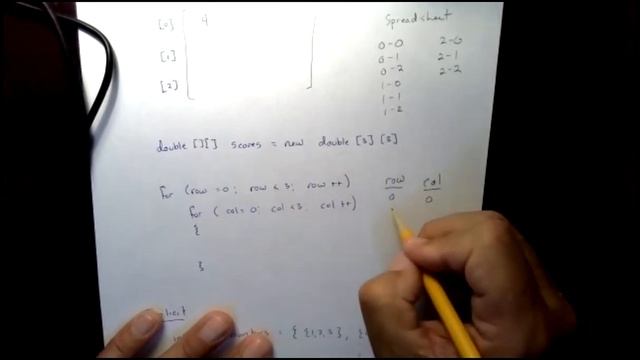 Spreadsheet
[0] 9
[1]
[2]
0-0 2-0
0-1 2-1
0-2 2-2
1-0
1-1
1-2
double [][] scores = new double [3] [3]
for (row = 0; row < 3; row ++)
for ( col = 0; col < 3; col ++)
{
}
row col
0 0
= { {1,2,3}, {